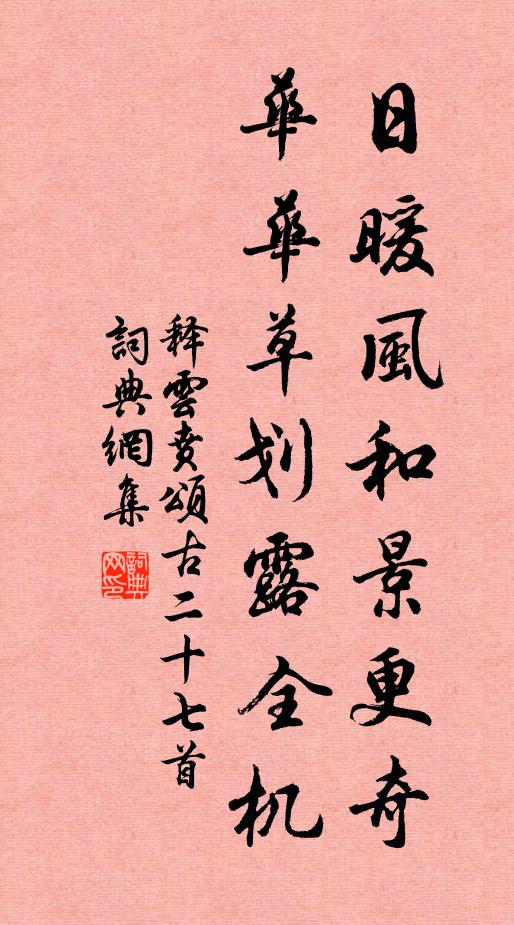 日暖風和景更奇
華華草划露全机
释雲贲頌古二十七首
詞典網集
詞典网印